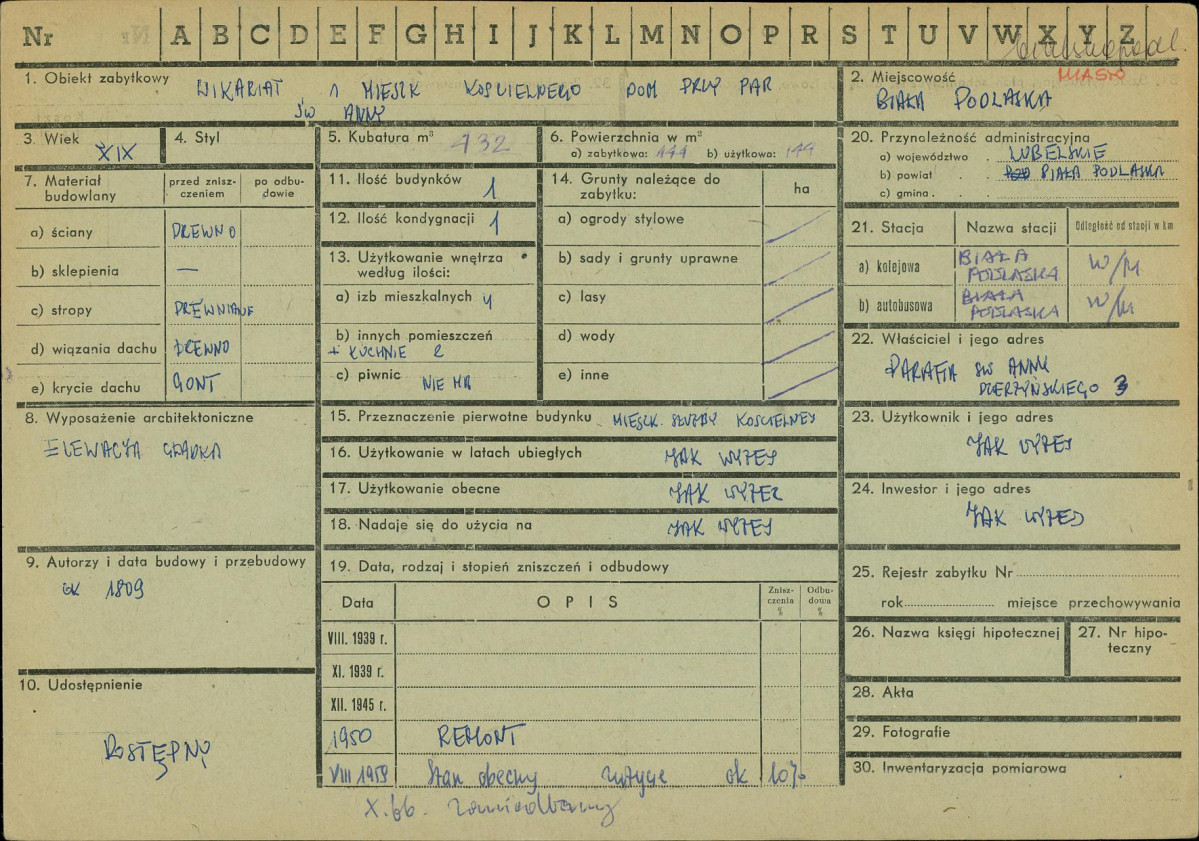 Nr A B C D E F G H I J K L M N O P R S T U V W X Y Z
1. Obiekt zabytkowy
WIKARIAT MIESZK KOŚCIELNEGO DOM PRZY PAR
ŚW ANNY
2. Miejscowość MIASTO
BIAŁA PODLASKA
3. Wiek
XIX
4. Styl
5. Kubatura m³ 432
6. Powierzchnia w m²
a) zabytkowa: 144 b) użytkowa: 144
7. Materiał budowlany
przed zniszczeniem
po odbudowie
a) ściany DREWNO
b) sklepienia —
c) stropy DREWNIANE
d) wiązania dachu DREWNO
e) krycie dachu GONT
8. Wyposażenie architektoniczne
ELEWACJA GŁADKA
9. Autorzy i data budowy i przebudowy
ok 1809
10. Udostępnienie
DOSTĘPNY
11. Ilość budynków 1
12. Ilość kondygnacji 1
13. Użytkowanie wnętrza
według ilości:
a) izb mieszkalnych 4
b) innych pomieszczeń
+ KUCHNIE 2
c) piwnic NIE MA
14. Grunty należące do
zabytku:
ha
a) ogrody stylowe
b) sady i grunty uprawne
c) lasy
d) wody
e) inne
15. Przeznaczenie pierwotne budynku MIESZK. SŁUŻBY KOŚCIELNEJ
16. Użytkowanie w latach ubiegłych JAK WYŻEJ
17. Użytkowanie obecne JAK WYŻEJ
18. Nadaje się do użycia na JAK WYŻEJ
19. Data, rodzaj i stopień zniszczeń i odbudowy
Data OPIS Zniszczenia % Odbudowa %
VIII. 1939 r.
XI. 1939 r.
XII. 1945 r.
1950 REMONT
VIII 1959 Stan obecny zużycie ok 10%
X.66. zaniedbany
20. Przynależność administracyjna
a) województwo . LUBELSKIE
b) powiat . BIAŁA PODLASKA
c) gmina .
21. Stacja Nazwa stacji Odległość od stacji w km
a) kolejowa BIAŁA PODLASKA W/M
b) autobusowa BIAŁA PODLASKA W/M
22. Właściciel i jego adres
PARAFIA ŚW ANNY
DZIERŻYŃSKIEGO 3
23. Użytkownik i jego adres
JAK WYŻEJ
24. Inwestor i jego adres
JAK WYŻEJ
25. Rejestr zabytku Nr
rok miejsce przechowywania
26. Nazwa księgi hipotecznej
27. Nr hipo-
teczny
28. Akta
29. Fotografie
30. Inwentaryzacja pomiarowa